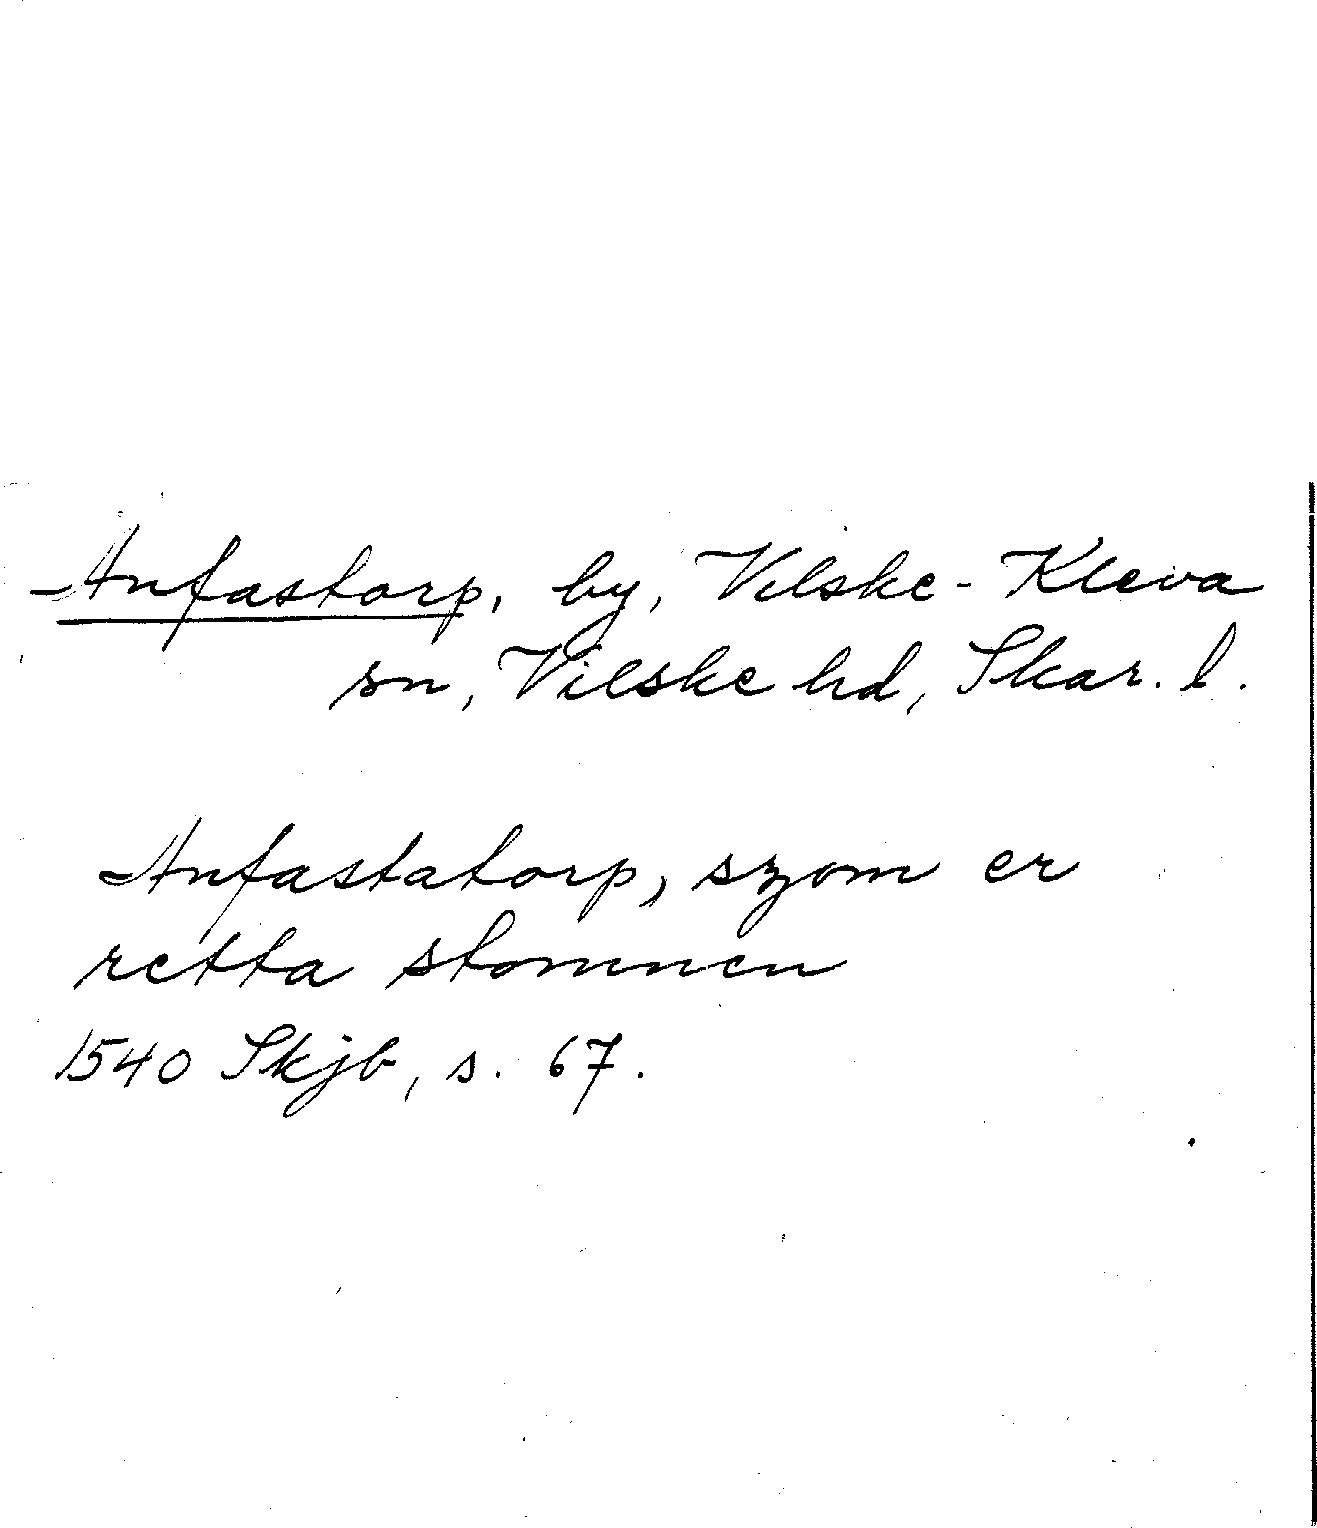 Anfastorp, by, Vilske-Kleva
sn, Vilske hd, Skar. l.
Anfastatorp, szom er
retta stomnen
1540 Skjb, s. 67.